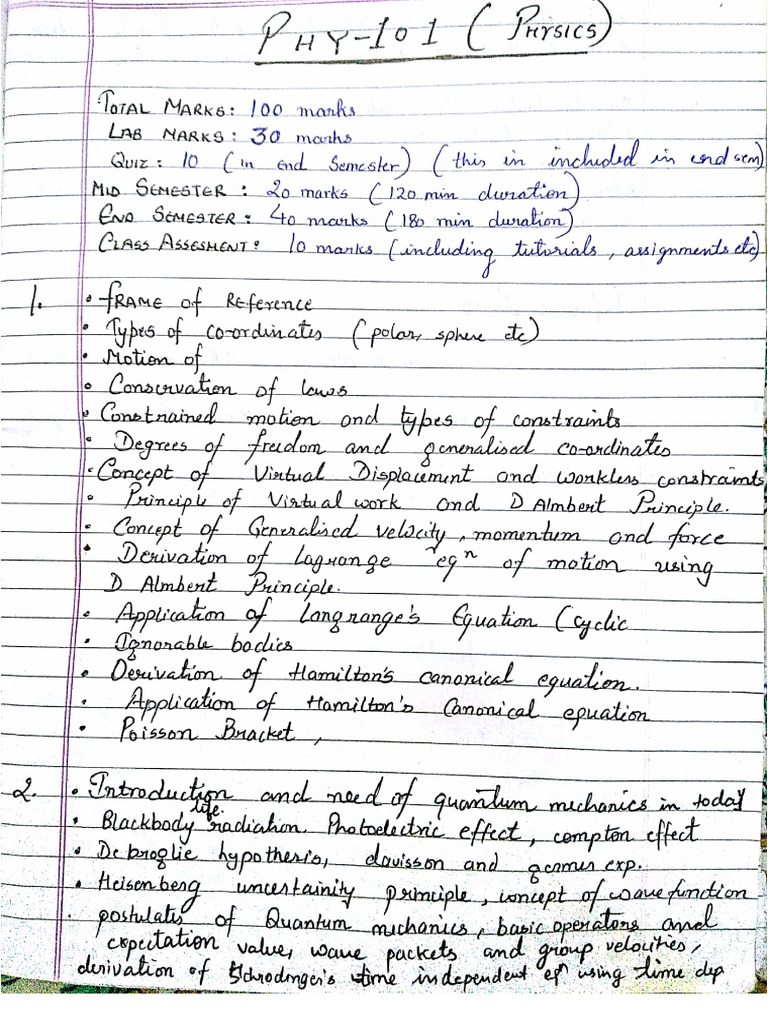 PHY-101 (PHYSICS)
TOTAL MARKS: 100 marks
LAB MARKS: 30 marks
QUIZ: 10 (in end Semester) (this in included in end sem)
MID SEMESTER: 20 marks (120 min duration)
END SEMESTER: 40 marks (180 min duration)
CLASS ASSESMENT: 10 marks (including tutorials, assignments etc)
1. • FRAME of Reference
• Types of co-ordinates (polar, sphere etc)
• Motion of
• Conservation of laws
• Constrained motion and types of constraints
• Degrees of freedom and generalised co-ordinates
• Concept of Virtual Displacement and workless constraints
• Principle of Virtual work and D Almbert Principle.
• Concept of Generalised velocity, momentum and force
• Derivation of lagrange eqn of motion using
D Almbert Principle.
• Application of Langrange's Equation (cyclic
• Ignorable bodies
• Derivation of Hamilton's canonical equation.
• Application of Hamilton's Canonical equation
• Poisson Bracket,
2. • Introduction and need of quantum mechanics in today
life.
• Blackbody radiation. Photoelectric effect, compton effect
• De broglie hypothesis, davisson and germer exp.
• Heisenberg uncertainity principle, concept of wave function
• postulates of Quantum mechanics, basic operators and
expectation value, wave packets and group velocities,
derivation of Schrodinger's time independent eqn using time dep